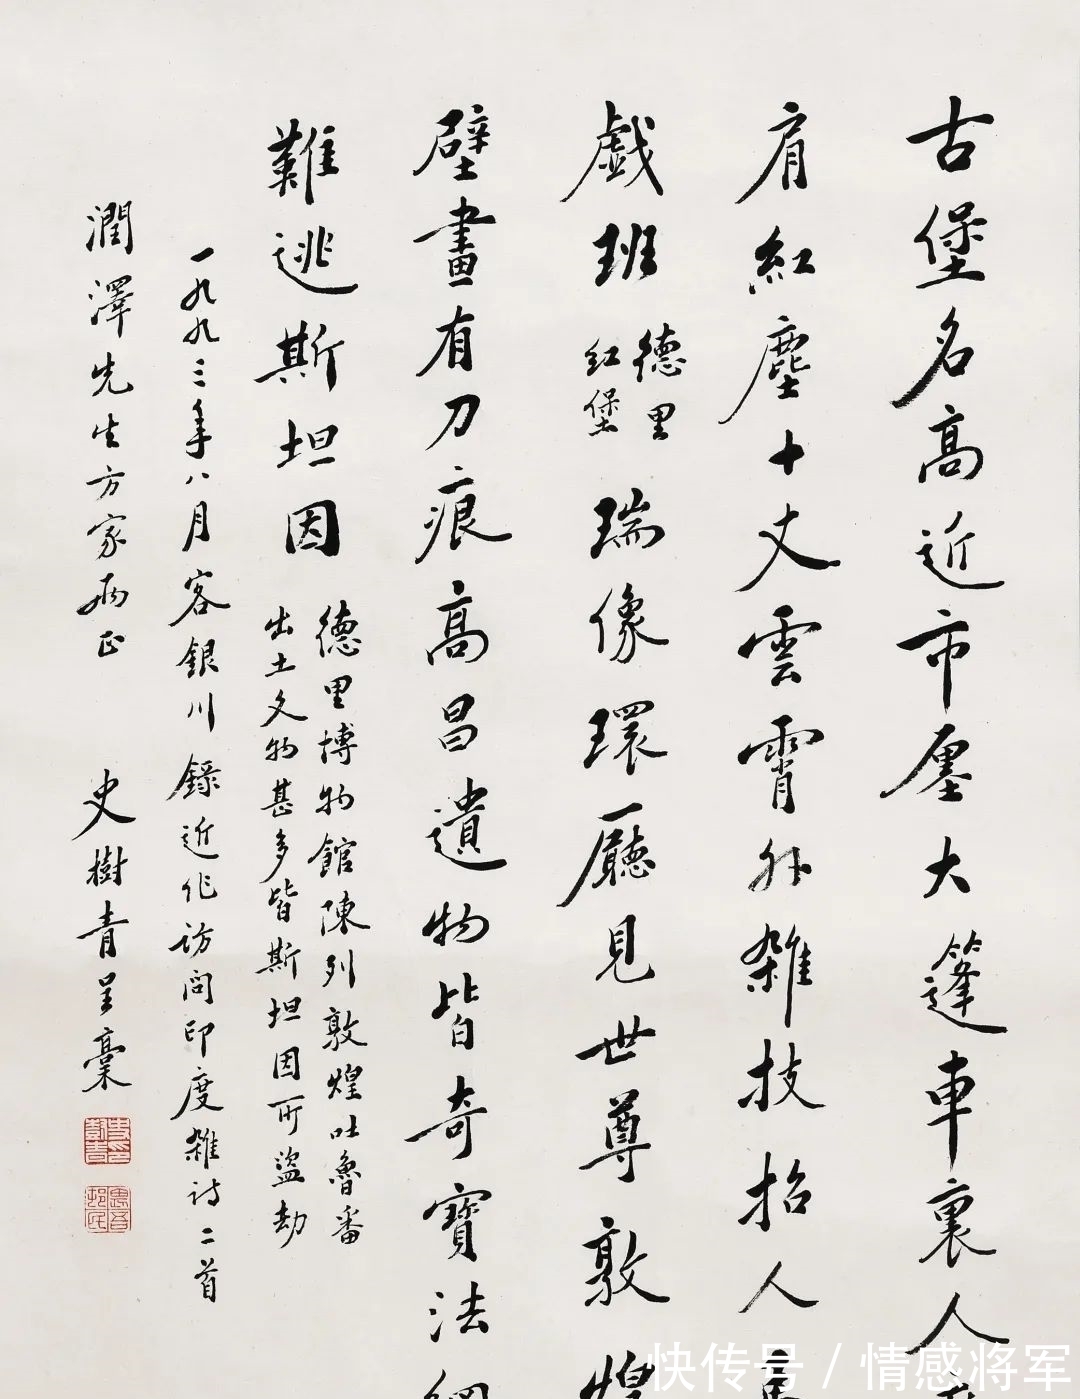 古堡名高近市廛大篷車裏人
肩紅塵十丈雲霄外雜技招人
戲班
德里
紅堡
瑞像環廳見世尊敦煌
壁畫有刀痕高昌遺物皆奇寶法網
難逃斯坦因
德里博物館陳列敦煌吐魯番
出土文物甚多皆斯坦因所盜劫
一九九三年八月客銀川錄近作訪問印度雜詩二首
潤澤先生方家兩正 史樹青呈稾
快传号 / 情感将军